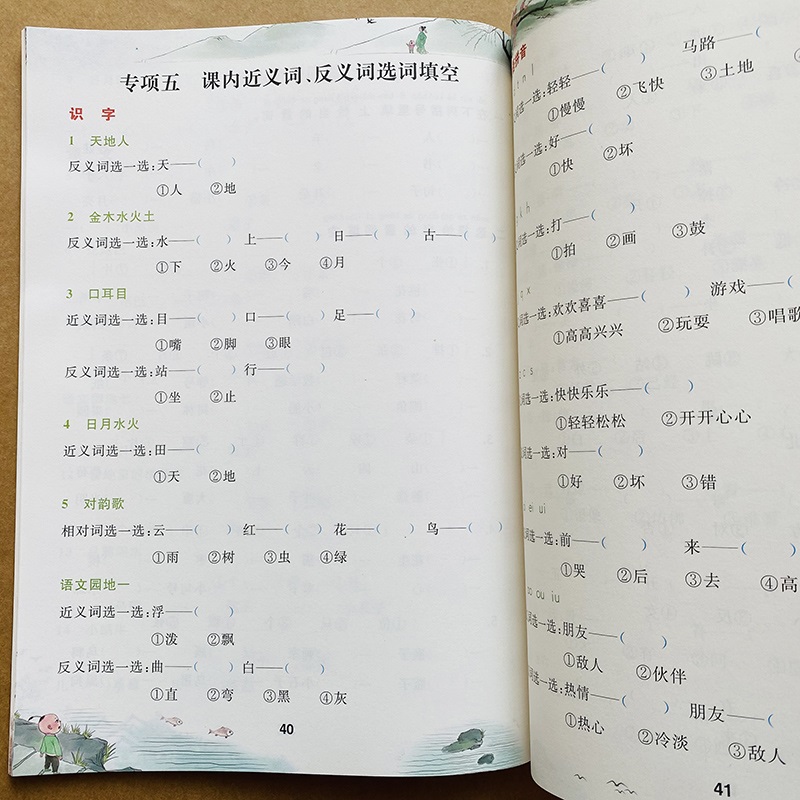 专项五 课内近义词、反义词选词填空
识 字
1 天地人
反义词选一选:天——( )
①人 ②地
2 金木水火土
反义词选一选:水——( ) 上——( ) 日——( ) 古——( )
①下 ②火 ③今 ④月
3 口耳目
近义词选一选:目——( ) 口——( ) 足——( )
①嘴 ②脚 ③眼
反义词选一选:站——( ) 行——( )
①坐 ②止
4 日月水火
近义词选一选:田——( )
①天 ②地
5 对韵歌
相对词选一选:云——( ) 红——( ) 花——( ) 鸟——( )
①雨 ②树 ③虫 ④绿
语文园地一
近义词选一选:浮——( )
①泼 ②飘
反义词选一选:曲——( ) 白——( )
①直 ②弯 ③黑 ④灰
40
音
n l
词选一选:轻轻——( ) 马路——(
①慢慢 ②飞快 ③土地
词选一选:好——( )
①快 ②坏
k h
选一选:打——( )
①拍 ②画 ③鼓
q x
选一选:欢欢喜喜——( ) 游戏——(
①高高兴兴 ②玩耍 ③唱歌
c s
词选一选:快快乐乐——( )
①轻轻松松 ②开开心心
词选一选:对——( )
①好 ②坏 ③错
ei ui
词选一选:前——( ) 来——(
①哭 ②后 ③去 ④高
ou iu
词选一选:朋友——( )
①敌人 ②伙伴
词选一选:热情——( ) 朋友——(
①热心 ②冷淡 ③敌人
41